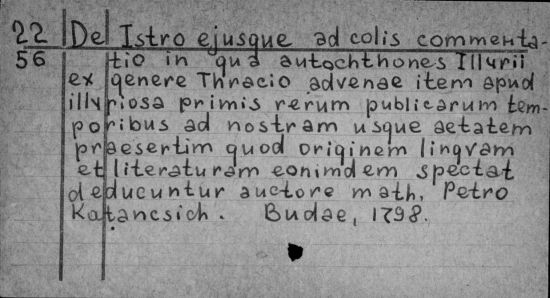 22 De Istro ejusque ad colis commenta-
56 tio in qua autochthones Illyrii
ex genere Thracio advenae item apud
illyriosa primis rerum publicarum tem-
poribus ad nostram usque aetatem
praesertim quod originem lingvam
et literaturam eonimdem spectat
deducuntur auctore math, Petro
Katancsich. Budae, 1798.